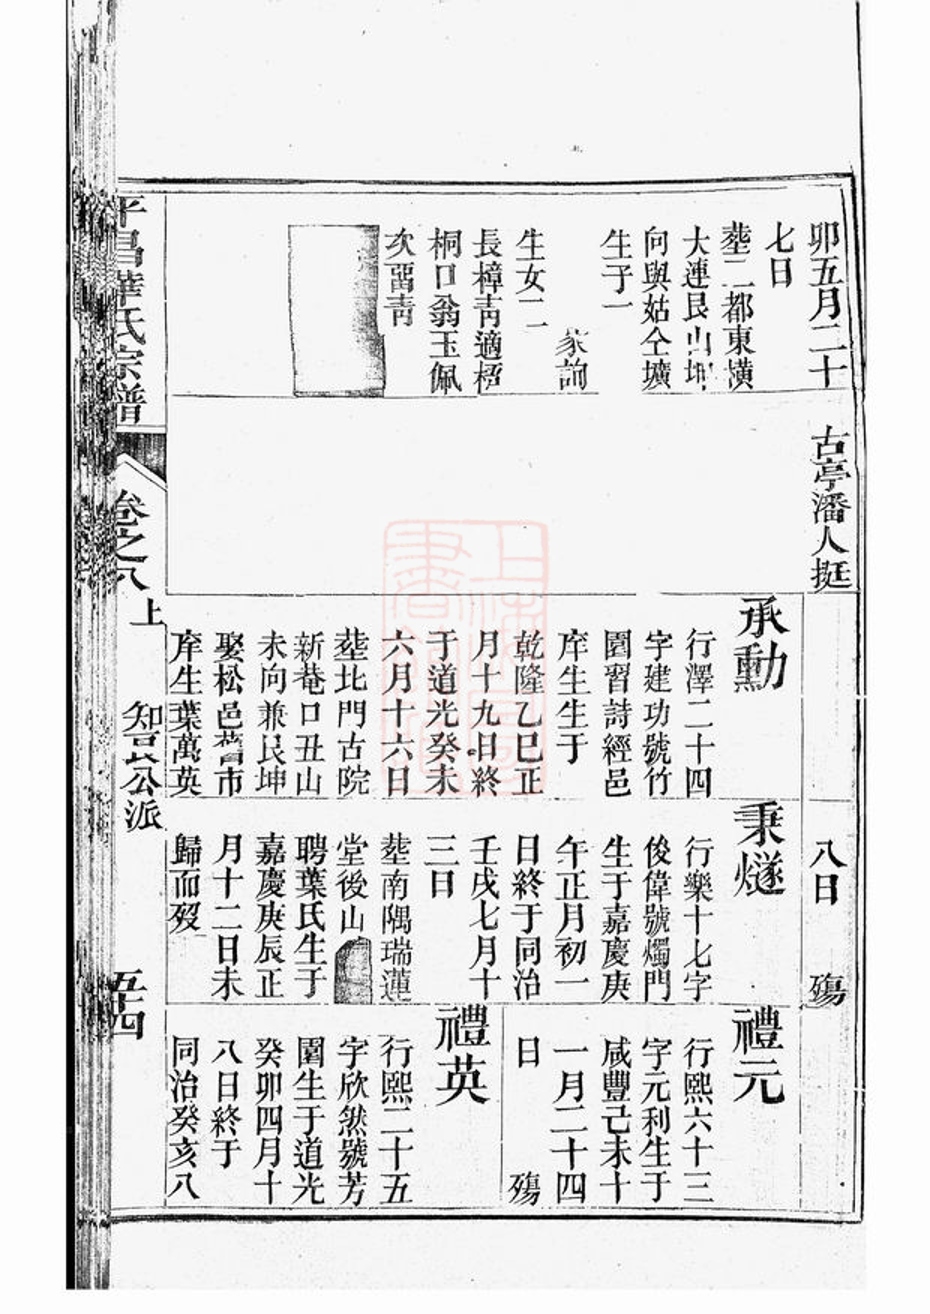 卯五月二十
七日
塟二都東橫
大連艮山坤
向與姑仝壙
生子一
家詢
生女二
長樟靑適
桐口翁玉佩
次畱靑
古亭潘人挺
承勳
行澤二十四
字建功號竹
圍習詩經邑
庠生生于
乾隆乙巳正
月十九日終
于道光癸未
六月十六日
塟北門古院
新菴口丑山
未向兼艮坤
娶松邑舊市
庠生葉萬英
八日
殤
秉燧
行樂十七字
俊偉號燭門
生于嘉慶庚
午正月初一
日終于同治
壬戌七月十
三日
塟南隅瑞蓮
堂後山
聘葉氏生于
嘉慶庚辰正
月十二日未
歸而歿
禮元
行熙六十三
字元利生于
咸豐己未十
一月二十四
日
殤
禮英
行熙二十五
字欣然號芳
圍生于道光
癸卯四月十
八日終于
同治癸亥八
平昌華氏宗譜
卷之八
上
知足公派
五十四
上海圖書館藏